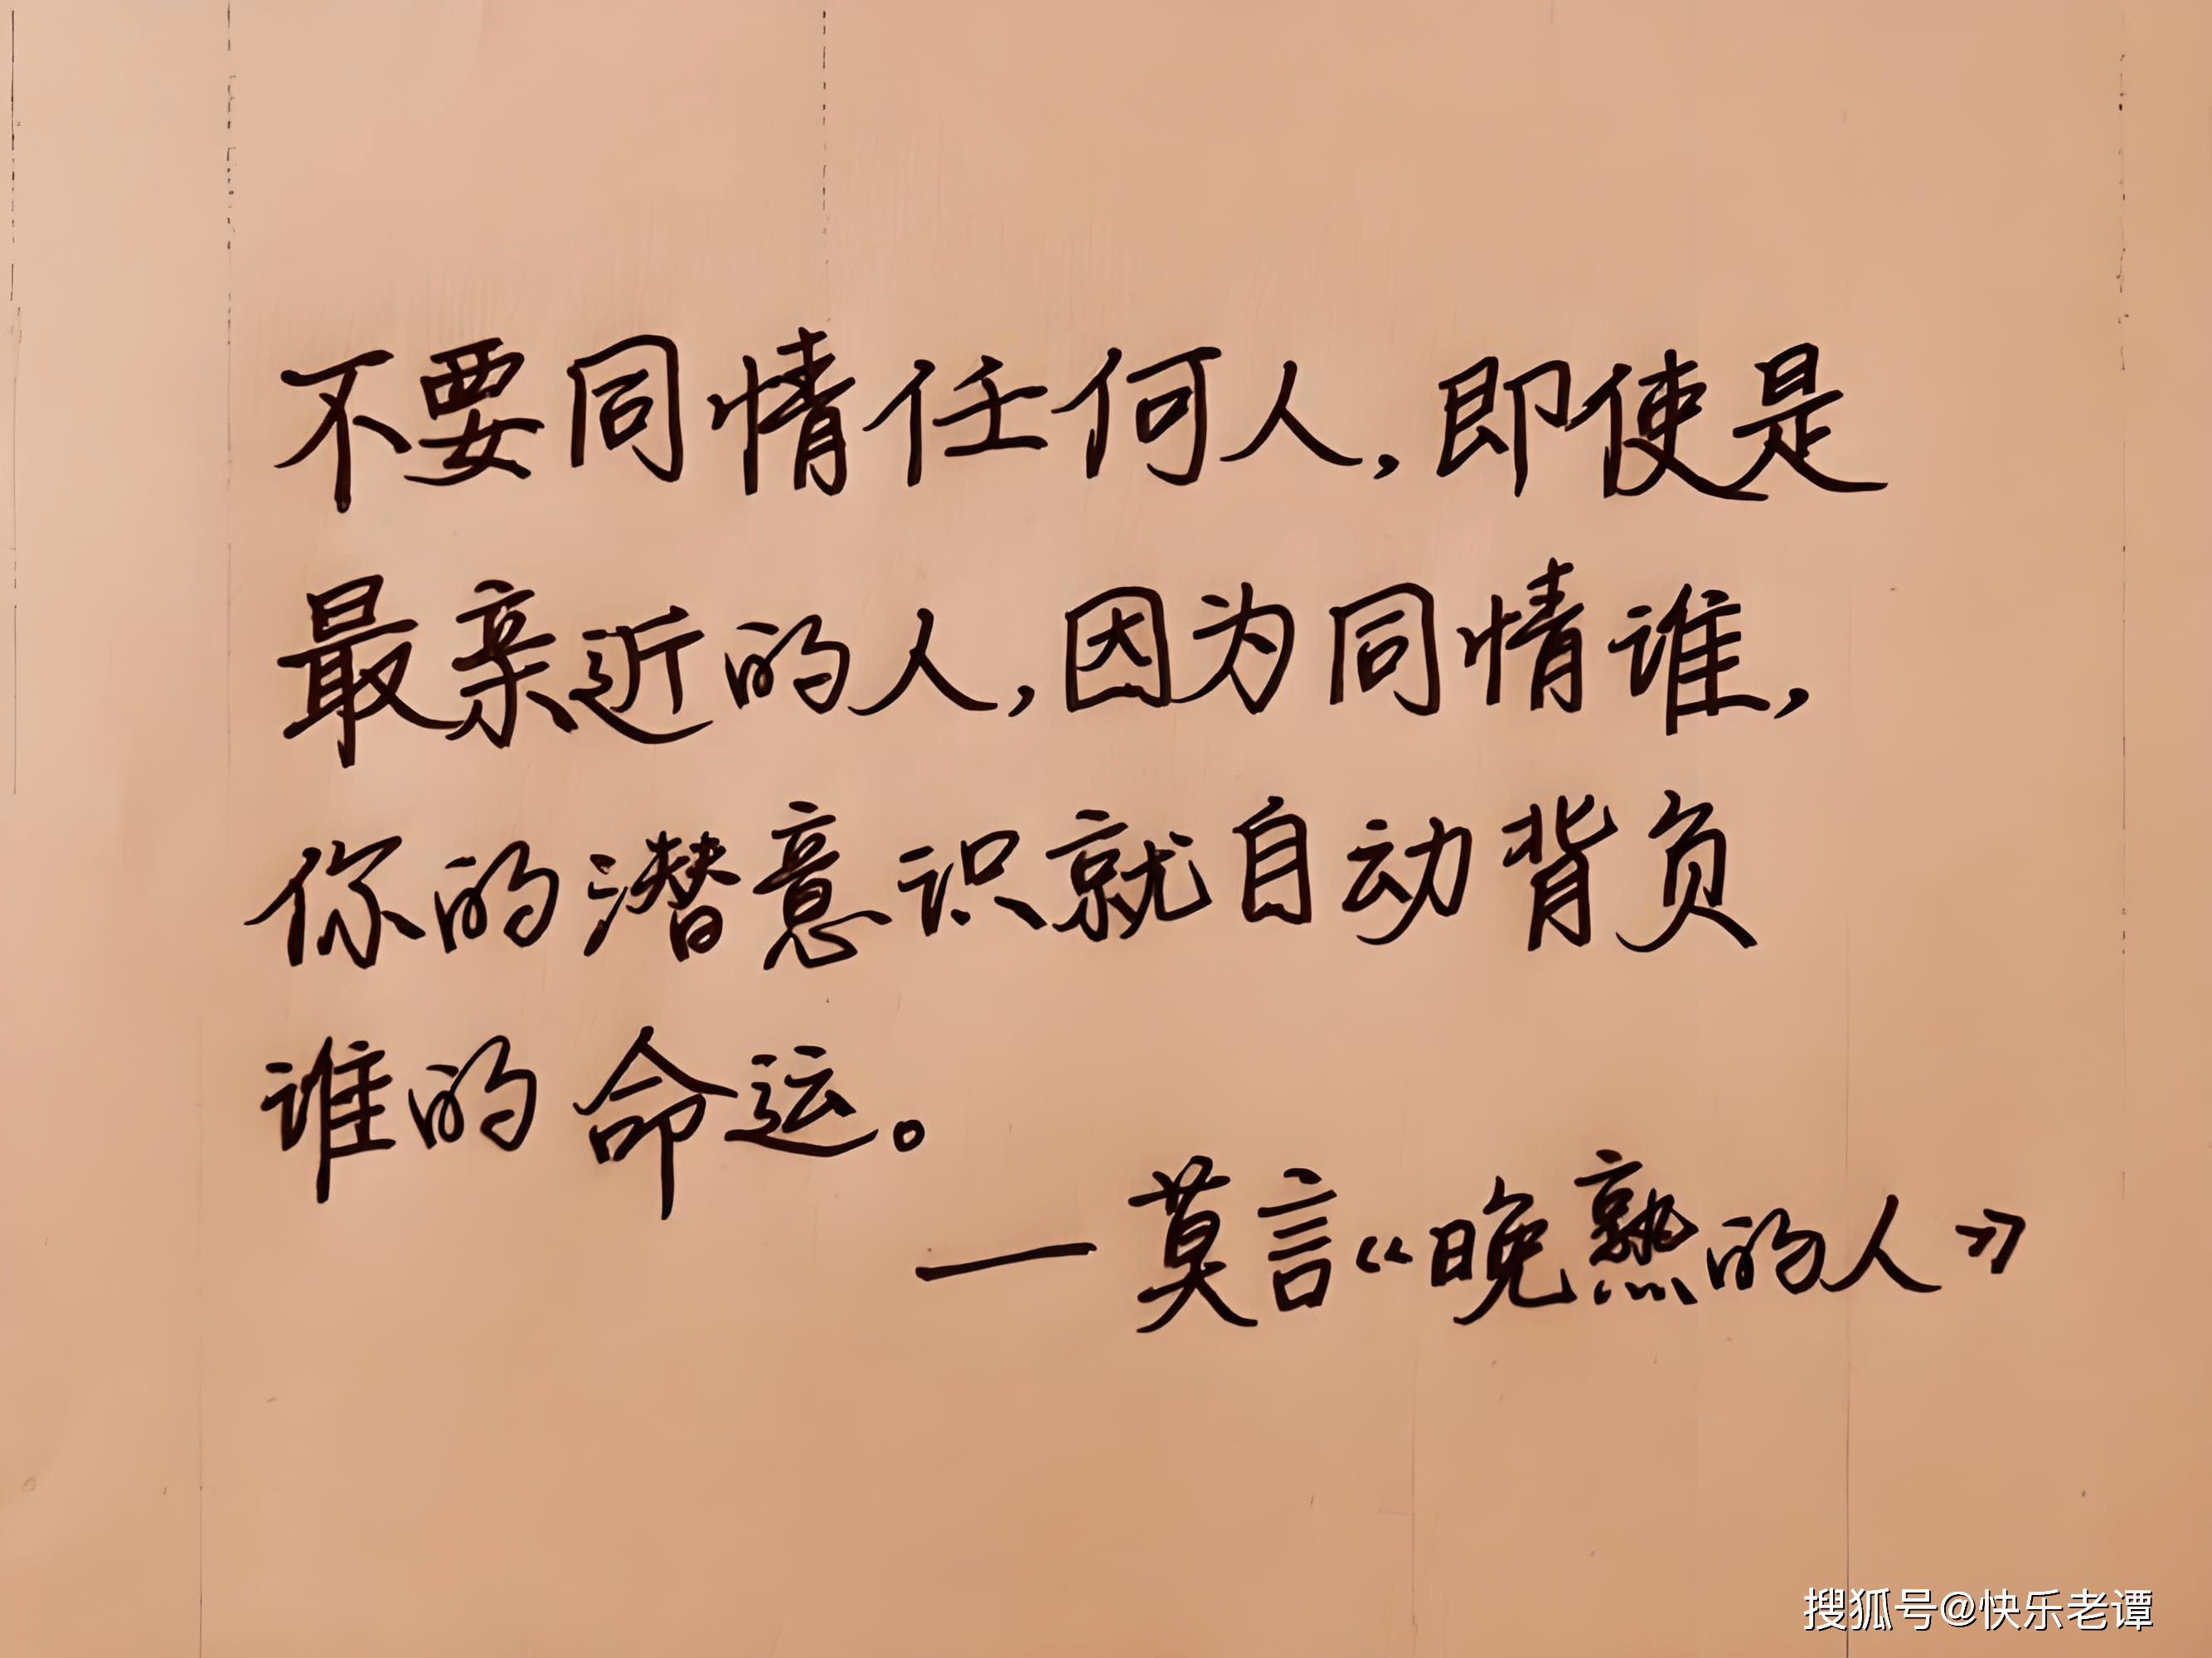 不要同情任何人,即使是
最亲近的人,因为同情谁,
你的潜意识就自动背负
谁的命运。
—莫言《晚熟的人》
搜狐号@快乐老谭